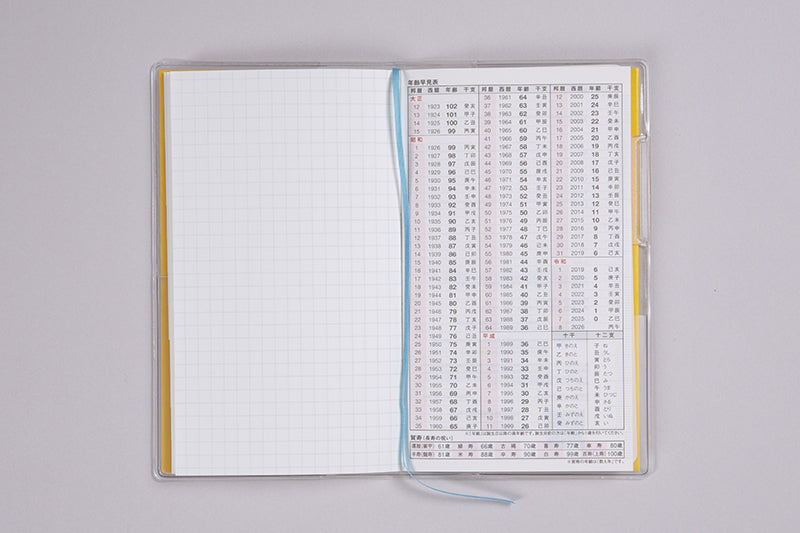 年齢早見表
邦暦 西暦 年齢 干支
大正
12 1923 102 癸亥
13 1924 101 甲子
14 1925 100 乙丑
15 1926 99 丙寅
昭和
1 1926 99 丙寅
2 1927 98 丁卯
3 1928 97 戊辰
4 1929 96 己巳
5 1930 95 庚午
6 1931 94 辛未
7 1932 93 壬申
8 1933 92 癸酉
9 1934 91 甲戌
10 1935 90 乙亥
11 1936 89 丙子
12 1937 88 丁丑
13 1938 87 戊寅
14 1939 86 己卯
15 1940 85 庚辰
16 1941 84 辛巳
17 1942 83 壬午
18 1943 82 癸未
19 1944 81 甲申
20 1945 80 乙酉
21 1946 79 丙戌
22 1947 78 丁亥
23 1948 77 戊子
24 1949 76 己丑
25 1950 75 庚寅
26 1951 74 辛卯
27 1952 73 壬辰
28 1953 72 癸巳
29 1954 71 甲午
30 1955 70 乙未
31 1956 69 丙申
32 1957 68 丁酉
33 1958 67 戊戌
34 1959 66 己亥
35 1960 65 庚子
邦暦 西暦 年齢 干支
36 1961 64 辛丑
37 1962 63 壬寅
38 1963 62 癸卯
39 1964 61 甲辰
40 1965 60 乙巳
41 1966 59 丙午
42 1967 58 丁未
43 1968 57 戊申
44 1969 56 己酉
45 1970 55 庚戌
46 1971 54 辛亥
47 1972 53 壬子
48 1973 52 癸丑
49 1974 51 甲寅
50 1975 50 乙卯
51 1976 49 丙辰
52 1977 48 丁巳
53 1978 47 戊午
54 1979 46 己未
55 1980 45 庚申
56 1981 44 辛酉
57 1982 43 壬戌
58 1983 42 癸亥
59 1984 41 甲子
60 1985 40 乙丑
61 1986 39 丙寅
62 1987 38 丁卯
63 1988 37 戊辰
64 1989 36 己巳
平成
1 1989 36 己巳
2 1990 35 庚午
3 1991 34 辛未
4 1992 33 壬申
5 1993 32 癸酉
6 1994 31 甲戌
7 1995 30 乙亥
8 1996 29 丙子
9 1997 28 丁丑
10 1998 27 戊寅
11 1999 26 己卯
邦暦 西暦 年齢 干支
12 2000 25 庚辰
13 2001 24 辛巳
14 2002 23 壬午
15 2003 22 癸未
16 2004 21 甲申
17 2005 20 乙酉
18 2006 19 丙戌
19 2007 18 丁亥
20 2008 17 戊子
21 2009 16 己丑
22 2010 15 庚寅
23 2011 14 辛卯
24 2012 13 壬辰
25 2013 12 癸巳
26 2014 11 甲午
27 2015 10 乙未
28 2016 9 丙申
29 2017 8 丁酉
30 2018 7 戊戌
31 2019 6 己亥
令和
1 2019 6 己亥
2 2020 5 庚子
3 2021 4 辛丑
4 2022 3 壬寅
5 2023 2 癸卯
6 2024 1 甲辰
7 2025 0 乙巳
8 2026 丙午
十干 十二支
甲 きのえ 子 ね
乙 きのと 丑 うし
丙 ひのえ 寅 とら
丁 ひのと 卯 う
戊 つちのえ 辰 たつ
己 つちのと 巳 み
庚 かのえ 午 うま
辛 かのと 未 ひつじ
壬 みずのえ 申 さる
癸 みずのと 酉 とり
戌 いぬ
亥 い
賀寿(長寿の祝い)
還暦(華甲)61歳 緑寿 66歳 古稀 70歳 喜寿 77歳 傘寿 80歳
半寿(盤寿)81歳 米寿 88歳 卒寿 90歳 白寿 99歳 百寿(上寿)100歳
※賀寿の年齢は「数え年」です。